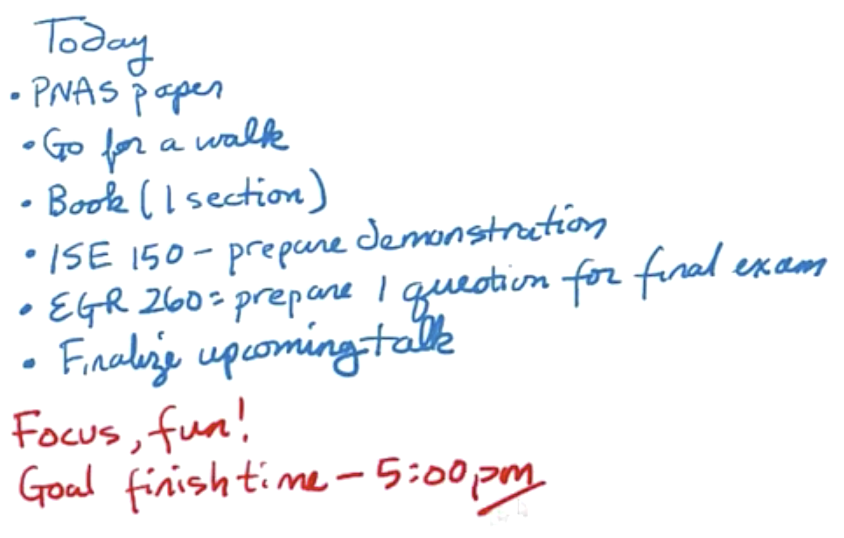 Today
• PNAS paper
• Go for a walk
• Book (1 section)
• ISE 150 - prepare demonstration
• EGR 260: prepare 1 question for final exam
• Finalize upcoming talk
Focus, fun!
Goal finish time - 5:00pm